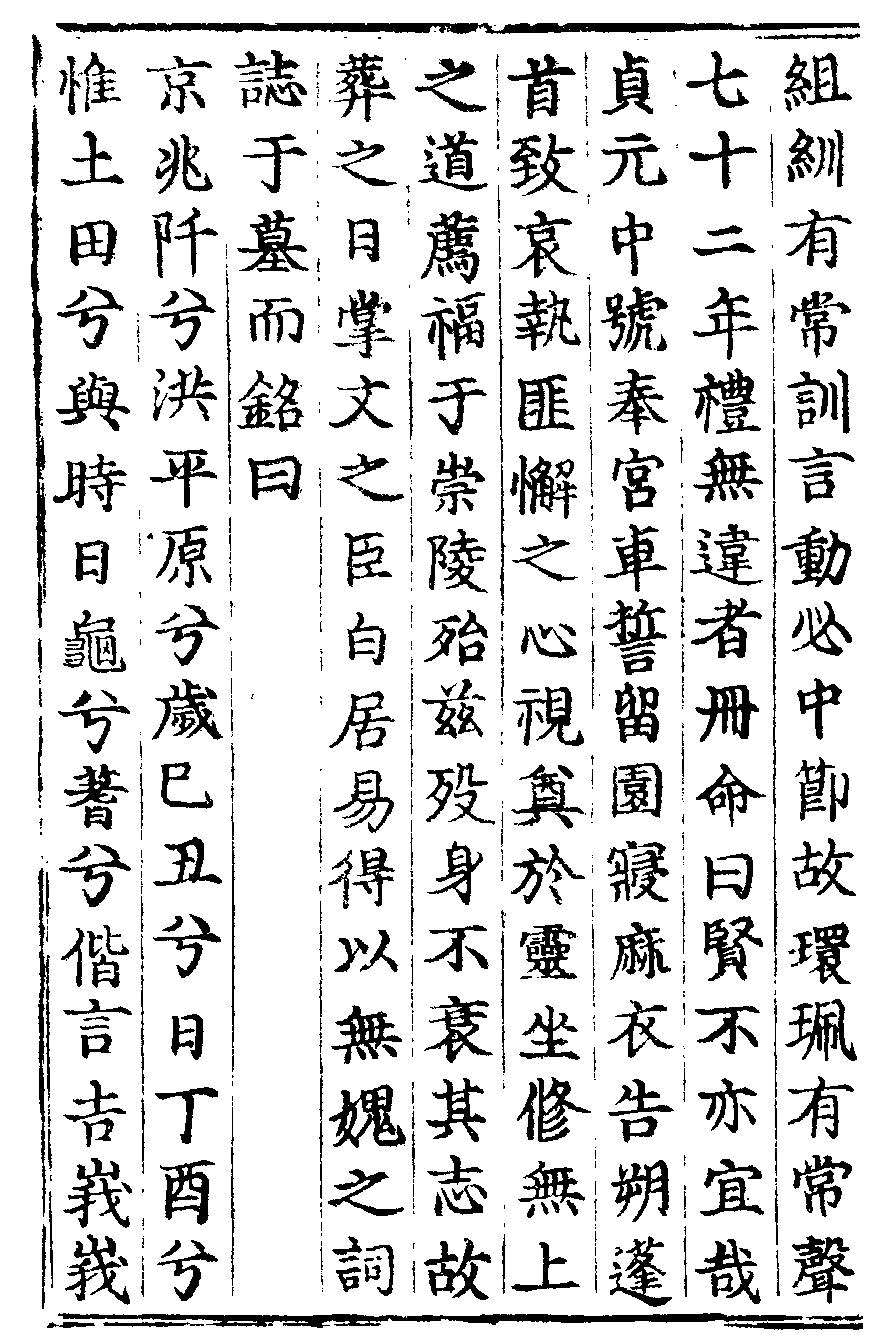 組紃有常訓言動必中節故環珮有常聲
七十二年禮無違者冊命曰賢不亦宜哉
貞元中號奉宮車誓留園寢麻衣告朔蓬
首致哀執匪懈之心視奠於靈坐修無上
之道薦福于崇陵殆茲歿身不衰其志故
葬之日掌文之臣白居易得以無媿之詞
誌于墓而銘曰
京兆阡兮洪平原兮歲巳丑兮日丁酉兮
惟土田兮與時日龜兮蓍兮偕言吉峩峩